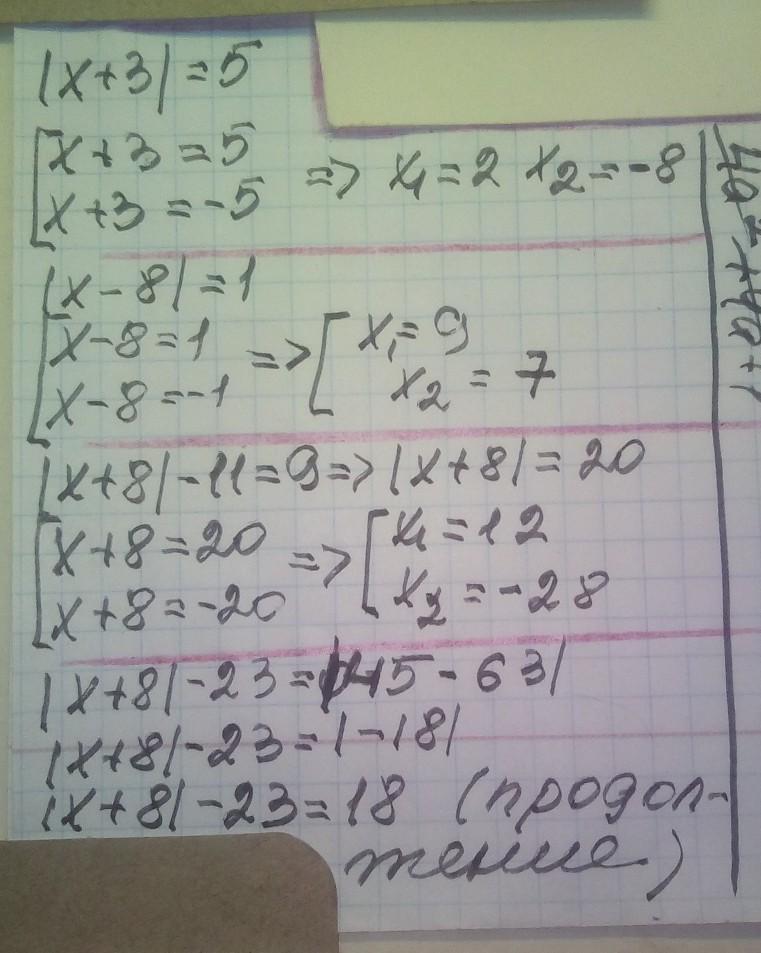 |x+3| = 5
[x+3 = 5
[x+3 = -5 => x₁ = 2 x₂ = -8
|x-8| = 1
[x-8 = 1
[x-8 = -1 => [x₁ = 9
x₂ = 7
|x+8| - 11 = 9 => |x+8| = 20
[x+8 = 20
[x+8 = -20 => [x₁ = 12
x₂ = -28
|x+8| - 23 = |45 - 63|
|x+8| - 23 = |-18|
|x+8| - 23 = 18 (продол-
жение)
4a² + 4a + 1